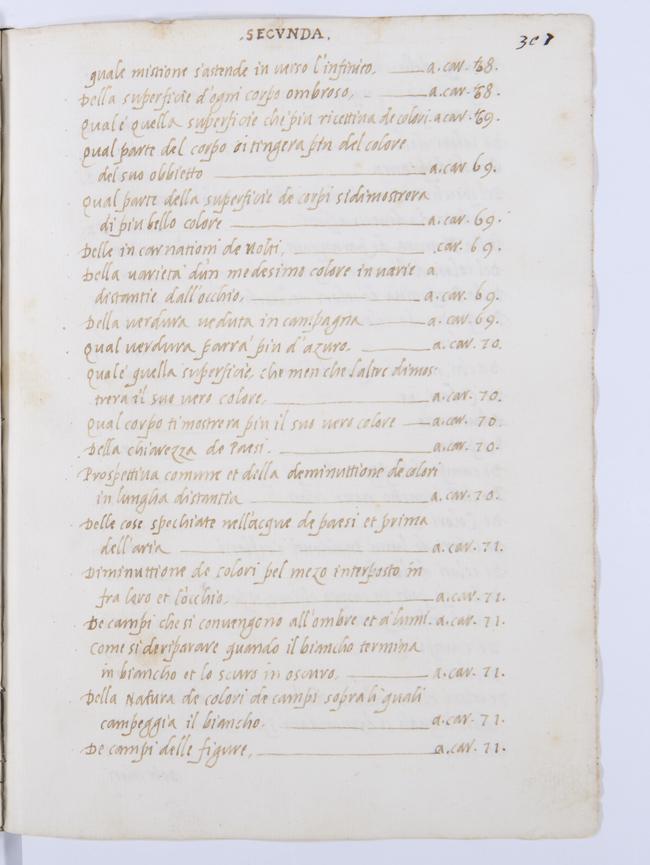 .SECVNDA.
307
quale mistione s'astende in verso l'infinito, a. car. 68.
Della superficie d'ogni corpo ombroso, a. car. 68.
Qual è quella superficie che piu ricettiva de colori. a car. 69.
Qual parte del corpo si tingera piu del colore
del suo obbietto a. car 69.
Qual parte della superficie de corpi si dimostrera
di piu bello colore a. car. 69.
Delle in carnationi de volti, car. 69.
Della varieta d'un medesimo colore in varie a
distantie dall'occhio, a. car. 69.
Della verdura veduta in campagna a. car. 69.
Qual verdura parra piu d'azuro. a. car. 70.
Qual é quella superficie, che men che l'altre dimos
trera il suo vero colore, a. car. 70.
Qual corpo ti mostrera piu il suo vero colore a. car. 70.
Della chiarezza de Paesi. a. car. 70.
Prospettiva comune et della deminuttione de colori
in lungha distantia a. car. 70.
Delle cose spechiate nell'acque de paesi et prima
dell'aria a. car. 71.
Diminuttione de colori pel mezo interposto in
fra loro et l'occhio. a. car. 71.
De campi che si convengono all'ombre et a lumi. a. car. 71.
Come si de riparare quando il biancho termina
in biancho et lo scuro in oscuro, a. car. 71.
Della Natura de colori de campi sopra li quali
campeggia il biancho. a. car. 71.
De campi delle figure, a. car. 71.